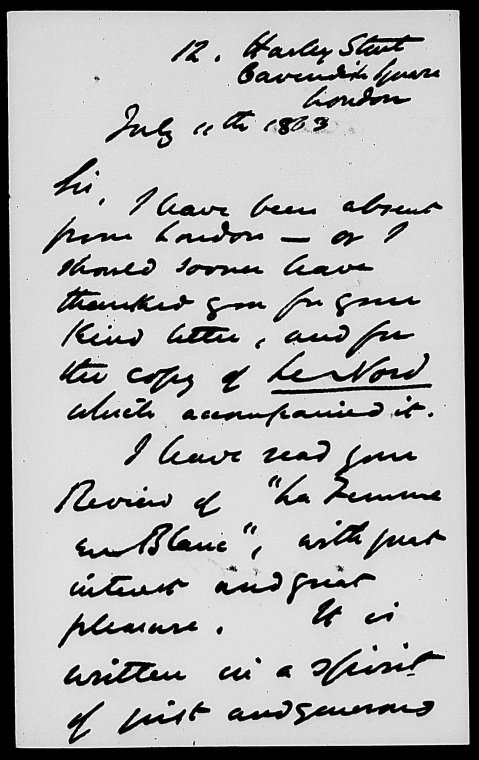 12. Harley Street
Cavendish Square
London
July 11th 1863
Sir,
I have been absent
from London — or I
should sooner have
thanked you for your
kind letter, and for
the copy of Le Nord
which accompanied it.
I have read your
Review of "La Femme
en Blanc", with great
interest and great
pleasure. It is
written in a spirit
of just and generous